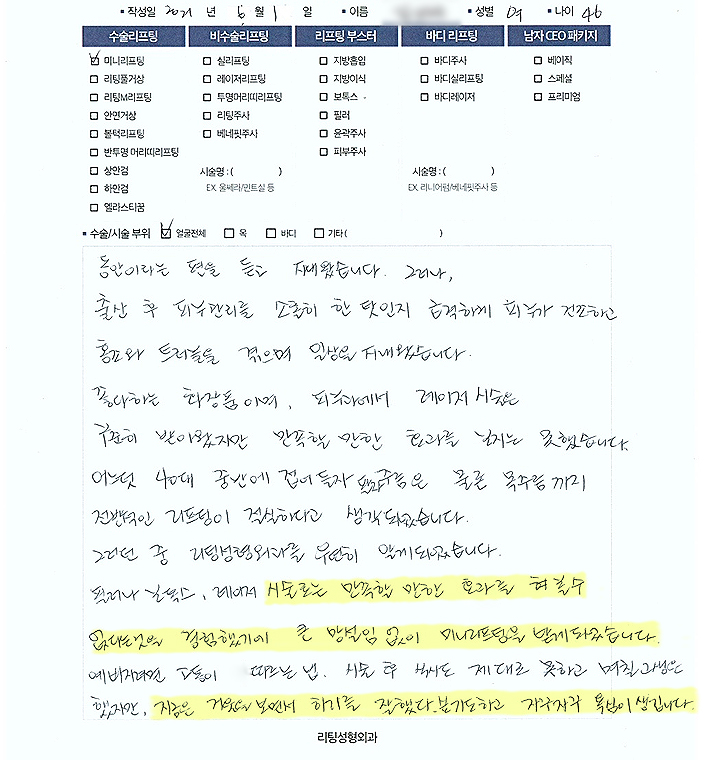 ▪ 작성일 2021 년 6 월 1 일 ▪ 이름 ▪ 성별 여 ▪ 나이 46
수술리프팅 비수술리프팅 리프팅 부스터 바디 리프팅 남자 CEO 패키지
☑ 미니리프팅 □ 실리프팅 □ 지방흡입 □ 바디주사 □ 베이직
□ 리팅풀거상 □ 레이저리프팅 □ 지방이식 □ 바디실리프팅 □ 스페셜
□ 리팅M리프팅 □ 투명머리띠리프팅 □ 보톡스 □ 바디레이저 □ 프리미엄
□ 안면거상 □ 리팅주사 □ 필러
□ 볼턱리프팅 □ 베네핏주사 □ 윤곽주사
□ 반투명 머리띠리프팅 □ 피부주사
□ 상안검 시술명 : ( ) 시술명 : ( )
□ 하안검 EX. 울쎄라/민트실 등 EX. 리니어펌/베네핏주사 등
□ 엘라스티꿈
▪ 수술/시술 부위 ☑ 얼굴전체 □ 목 □ 바디 □ 기타 ( )
동안이라는 편을 듣고 지내왔습니다. 그러나,
출산 후 피부관리를 소홀히 한 탓인지 급격하게 피부가 건조하고
홍조와 트러블을 겪으며 일상을 지내왔습니다.
좋다하는 화장품이며, 피부과에서 레이저 시술은
꾸준히 받아왔지만 만족할 만한 효과를 남기는 못했습니다.
어느덧 40대 중반에 접어들자 주름은 물론 목주름까지
전반적인 리프팅이 절실하다고 생각되었습니다.
그러던 중 리팅성형외과를 우연히 알게되었습니다.
필러나 보톡스, 레이저 시술로는 만족할 만한 효과를 볼 수
없다는것을 경험했기에 큰 망설임 없이 미니리프팅을 받게되었습니다.
예뻐지려면 고통이 따르는 법. 시술 후 식사도 제대로 못하고 며칠 고생은
했지만, 지금은 거울을 보면서 하기를 잘했다 싶기도하고 자꾸자꾸 욕심이 생깁니다.
리팅성형외과